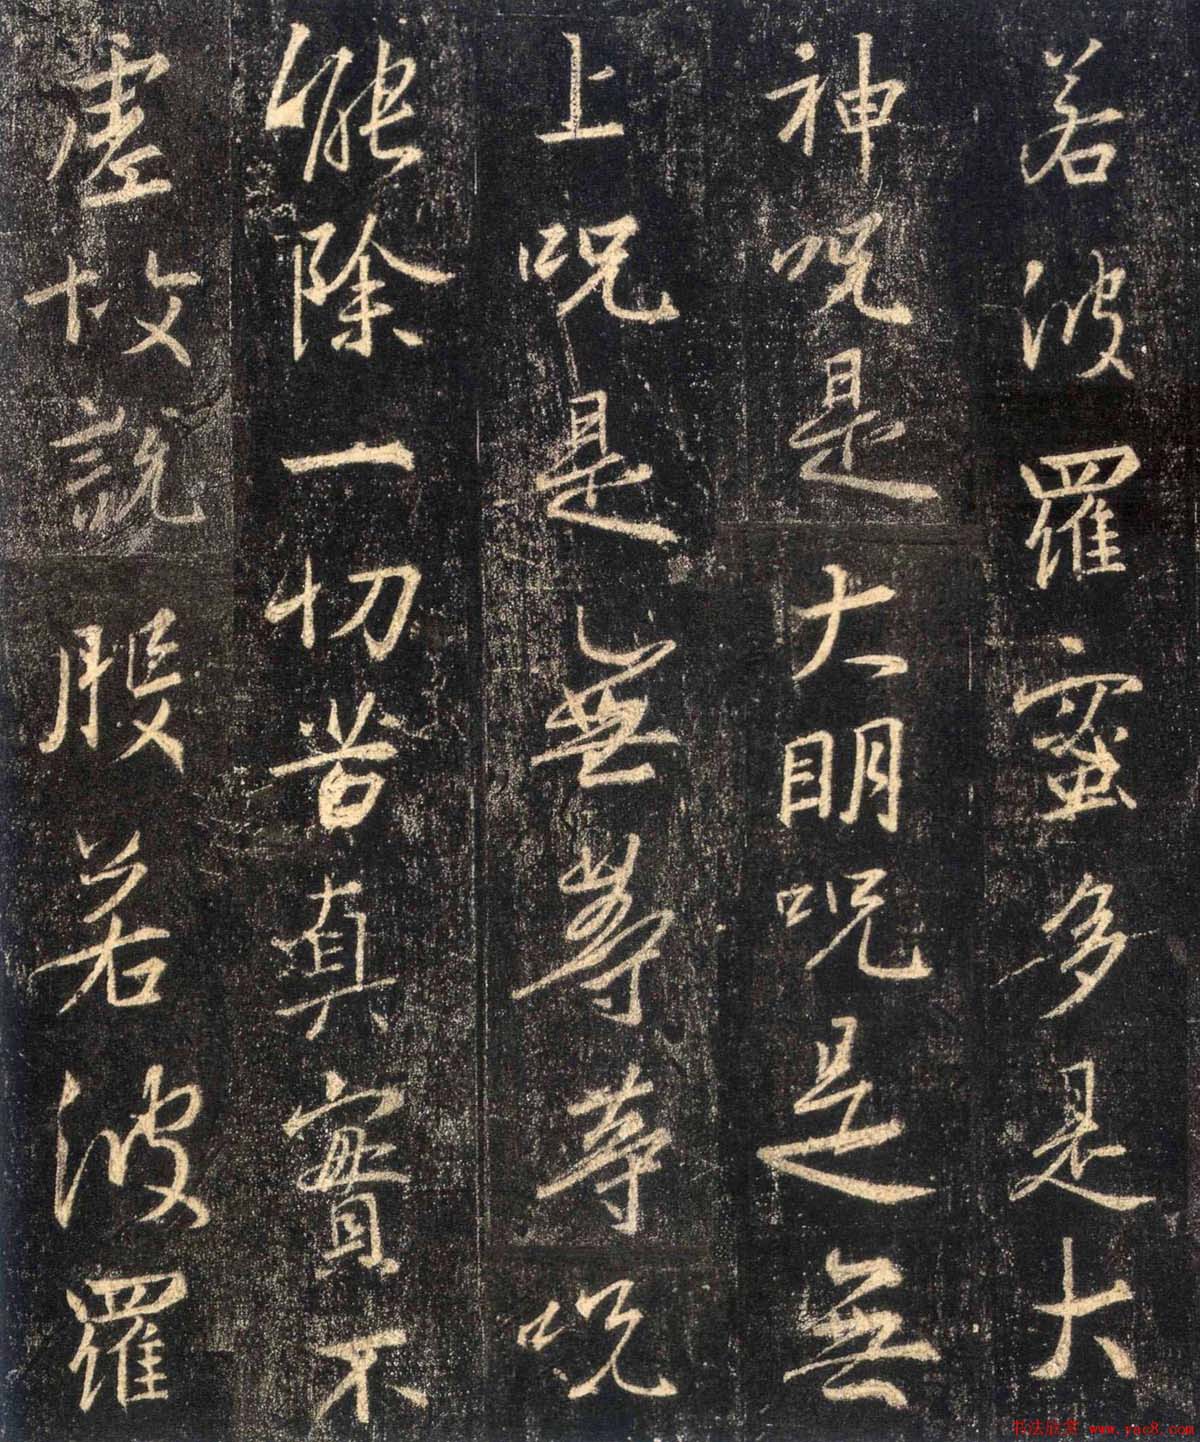 若波羅蜜多是大
神呪是大明呪是無
上呪是無等等呪
能除一切苦真實不
虛故說般若波羅
书法欣赏 www.yac8.com